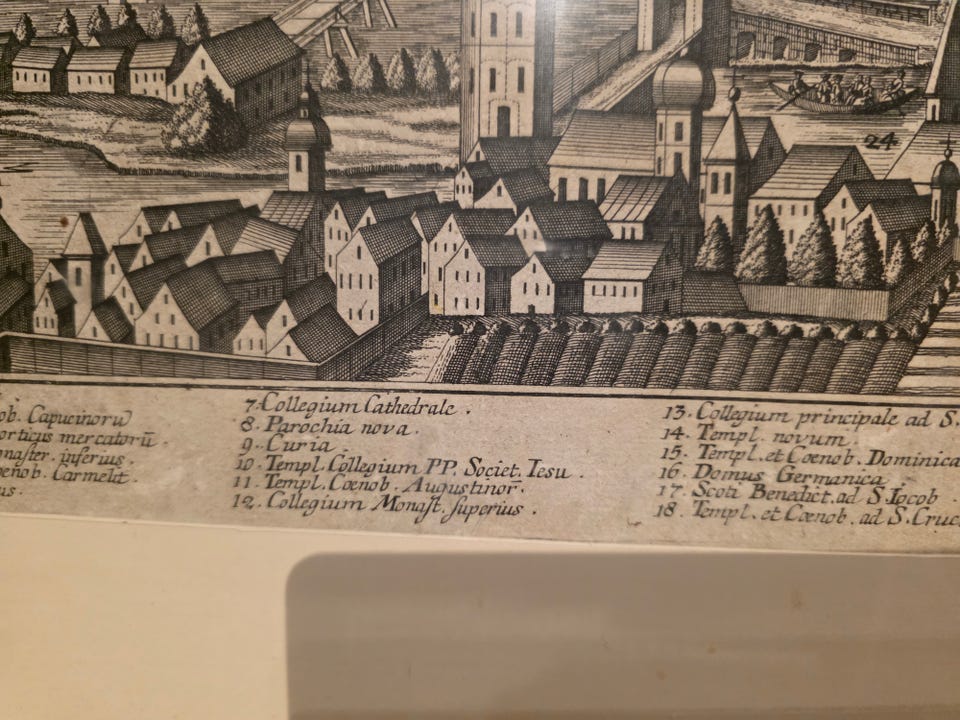 24
ob. Capucinorū
orticus mercatorū.
naster. inferius.
enob. Carmelit.
us.
7. Collegium Cathedrale.
8. Parochia nova.
9. Curia.
10. Templ. Collegium PP. Societ. Iesu.
11. Templ. Cœnob. Augustinor̄.
12. Collegium Monast. superius.
13. Collegium principale ad S.
14. Templ. novum
15. Templ. et Cœnob. Dominica
16. Domus Germanica
17. Scoti Benedict. ad S. Iocob
18. Templ. et Cœnob. ad S. Cruc